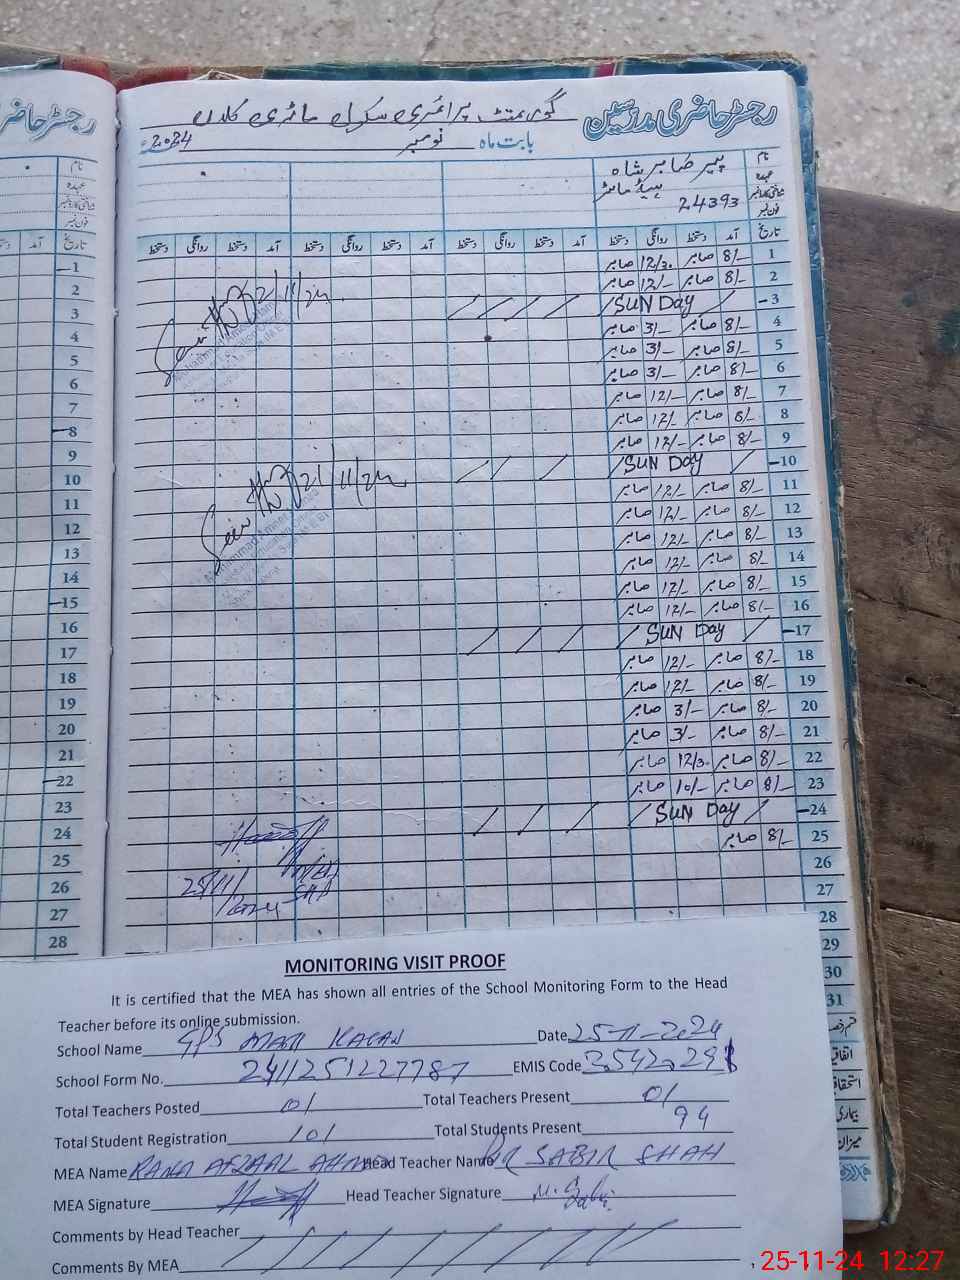 رجسٹر حاضری مدرسین
گورنمنٹ پرائمری سکول ماڑی کلاں
بابت ماہ نومبر 2024
نام پیر صابر شاہ
عہدہ ہیڈ ماسٹر
شناختی کارڈ نمبر 24393
فون نمبر
تاریخ آمد دستخط روانگی دستخط آمد دستخط روانگی دستخط آمد دستخط روانگی دستخط آمد دستخط روانگی دستخط
1 8/- صابر 12/30 صابر
2 8/- صابر 12/- صابر
3 SUN Day
4 8/- صابر 3/- صابر
5 8/- صابر 3/- صابر
6 8/- صابر 3/- صابر
7 8/- صابر 12/- صابر
8 8/- صابر 12/- صابر
9 8/- صابر 12/- صابر
10 SUN Day
11 8/- صابر 12/- صابر
12 8/- صابر 12/- صابر
13 8/- صابر 12/- صابر
14 8/- صابر 12/- صابر
15 8/- صابر 12/- صابر
16 8/- صابر 12/- صابر
17 SUN Day
18 8/- صابر 12/- صابر
19 8/- صابر 12/- صابر
20 8/- صابر 3/- صابر
21 8/- صابر 3/- صابر
22 8/- صابر 12/30 صابر
23 8/- صابر 10/- صابر
24 SUN Day
25 8/- صابر
26
27
28
29
30
31
Seen 21/11/24
Seen 21/11/24
25/11/2024
MONITORING VISIT PROOF
It is certified that the MEA has shown all entries of the School Monitoring Form to the Head
Teacher before its online submission.
School Name GPS MARI KALAN Date 25-11-2024
School Form No. 2411251227787 EMIS Code 35420291
Total Teachers Posted 01 Total Teachers Present 01
Total Student Registration 101 Total Students Present 94
MEA Name RANA AFZAAL AHMAD Head Teacher Name PIR SABIR SHAH
MEA Signature Head Teacher Signature
Comments by Head Teacher
Comments By MEA
25-11-24 12:27